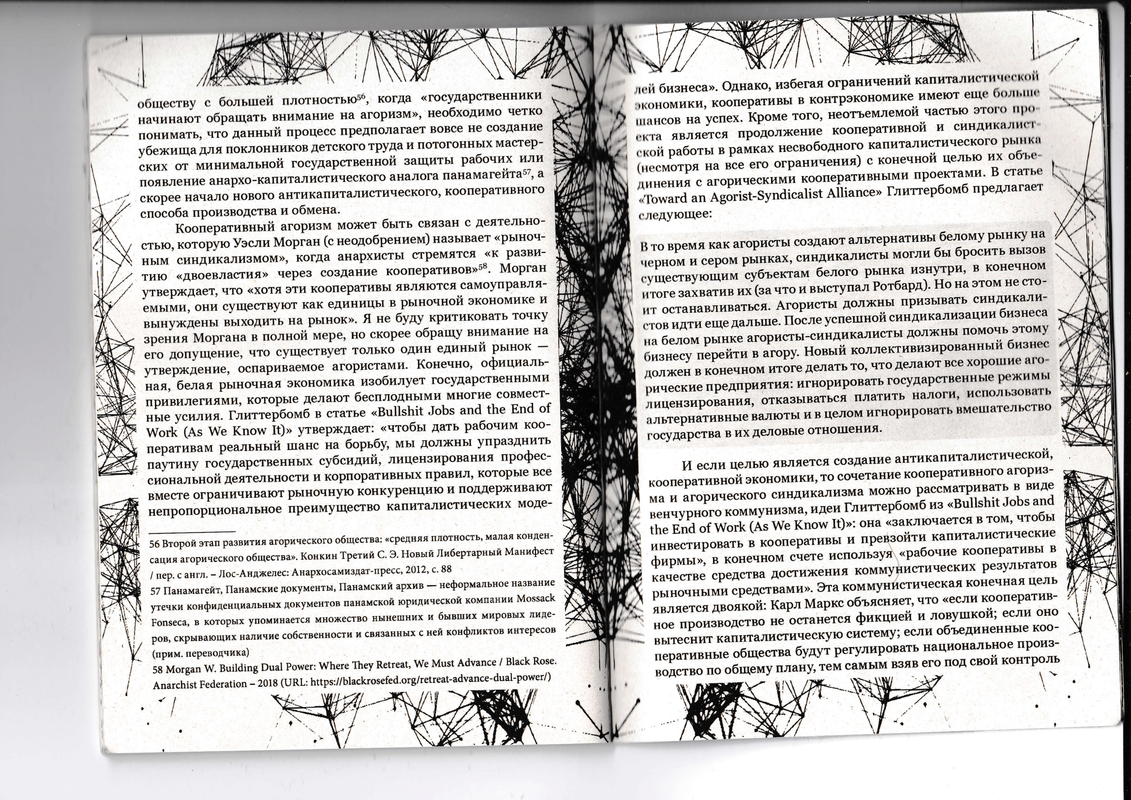 обществу с большей плотностью⁵⁶, когда «государственники
начинают обращать внимание на агоризм», необходимо четко
понимать, что данный процесс предполагает вовсе не создание
убежища для поклонников детского труда и потогонных мастер-
ских от минимальной государственной защиты рабочих или
появление анархо-капиталистического аналога панамагейта⁵⁷, а
скорее начало нового антикапиталистического, кооперативного
способа производства и обмена.
Кооперативный агоризм может быть связан с деятельно-
стью, которую Уэсли Морган (с неодобрением) называет «рыноч-
ным синдикализмом», когда анархисты стремятся «к разви-
тию «двоевластия» через создание кооперативов»⁵⁸. Морган
утверждает, что «хотя эти кооперативы являются самоуправля-
емыми, они существуют как единицы в рыночной экономике и
вынуждены выходить на рынок». Я не буду критиковать точку
зрения Моргана в полной мере, но скорее обращу внимание на
его допущение, что существует только один единый рынок —
утверждение, оспариваемое агористами. Конечно, официаль-
ная, белая рыночная экономика изобилует государственными
привилегиями, которые делают бесплодными многие совмест-
ные усилия. Глиттербомб в статье «Bullshit Jobs and the End of
Work (As We Know It)» утверждает: «чтобы дать рабочим коо-
перативам реальный шанс на борьбу, мы должны упразднить
паутину государственных субсидий, лицензирования профес-
сиональной деятельности и корпоративных правил, которые все
вместе ограничивают рыночную конкуренцию и поддерживают
непропорциональное преимущество капиталистических моде-
56 Второй этап развития агорического общества: «средняя плотность, малая конден-
сация агорического общества». Конкин Третий С. Э. Новый Либертарный Манифест
/ пер. с англ. – Лос-Анджелес: Анархосамиздат-пресс, 2012, с. 88
57 Панамагейт, Панамские документы, Панамский архив — неформальное название
утечки конфиденциальных документов панамской юридической компании Mossack
Fonseca, в которых упоминается множество нынешних и бывших мировых лиде-
ров, скрывающих наличие собственности и связанных с ней конфликтов интересов
(прим. переводчика)
58 Morgan W. Building Dual Power: Where They Retreat, We Must Advance / Black Rose.
Anarchist Federation – 2018 (URL: https://blackrosefed.org/retreat-advance-dual-power/)
лей бизнеса». Однако, избегая ограничений капиталистической
экономики, кооперативы в контрэкономике имеют еще больше
шансов на успех. Кроме того, неотъемлемой частью этого про-
екта является продолжение кооперативной и синдикалист-
ской работы в рамках несвободного капиталистического рынка
(несмотря на все его ограничения) с конечной целью их объе-
динения с агорическими кооперативными проектами. В статье
«Toward an Agorist-Syndicalist Alliance» Глиттербомб предлагает
следующее:
В то время как агористы создают альтернативы белому рынку на
черном и сером рынках, синдикалисты могли бы бросить вызов
существующим субъектам белого рынка изнутри, в конечном
итоге захватив их (за что и выступал Ротбард). Но на этом не сто-
ит останавливаться. Агористы должны призывать синдикали-
стов идти еще дальше. После успешной синдикализации бизнеса
на белом рынке агористы-синдикалисты должны помочь этому
бизнесу перейти в агору. Новый коллективизированный бизнес
должен в конечном итоге делать то, что делают все хорошие аго-
рические предприятия: игнорировать государственные режимы
лицензирования, отказываться платить налоги, использовать
альтернативные валюты и в целом игнорировать вмешательство
государства в их деловые отношения.
И если целью является создание антикапиталистической,
кооперативной экономики, то сочетание кооперативного агориз-
ма и агорического синдикализма можно рассматривать в виде
венчурного коммунизма, идеи Глиттербомб из «Bullshit Jobs and
the End of Work (As We Know It)»: она «заключается в том, чтобы
инвестировать в кооперативы и превзойти капиталистические
фирмы», в конечном счете используя «рабочие кооперативы в
качестве средства достижения коммунистических результатов
рыночными средствами». Эта коммунистическая конечная цель
является двоякой: Карл Маркс объясняет, что «если кооператив-
ное производство не останется фикцией и ловушкой; если оно
вытеснит капиталистическую систему; если объединенные коо-
перативные общества будут регулировать национальное произ-
водство по общему плану, тем самым взяв его под свой контроль